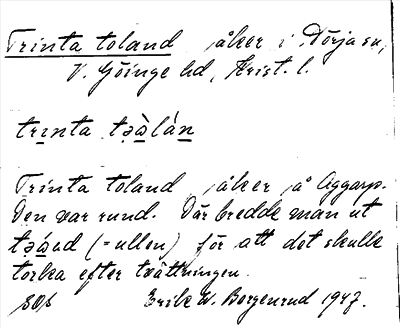 Trinta toland åker i Nörja sn,
V. Göinge hd, Krist. l.
trınta
Trinta toland, åker på Aggarp.
Den var rund. Där bredde man ut
(= ullen) för att det skulle
torka efter tvättningen.
Erik W. Borgenrud 1947.